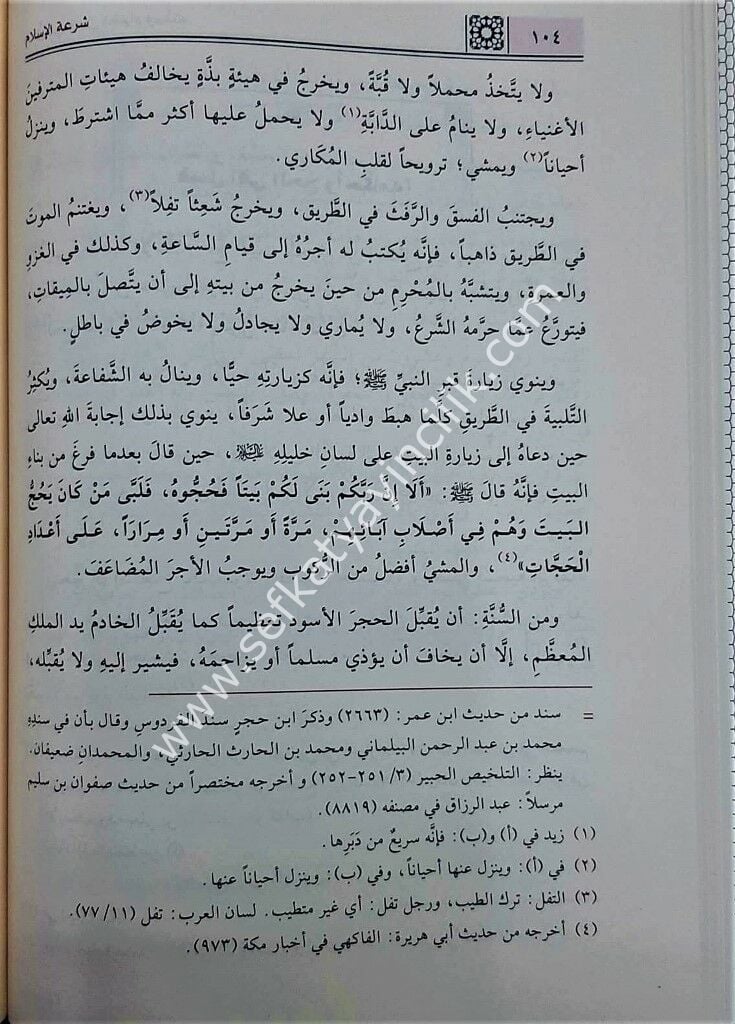 ١٠٤
شرعة الإسلام
ولا يتَّخذُ محملاً ولا قُبَّةً، ويخرجُ في هيئةٍ بذَّةٍ يخالفُ هيئاتِ المترفينَ
الأغنياءِ، ولا ينامُ على الدَّابَّةِ(١) ولا يحملُ عليها أكثر ممَّا اشترطَ، وينزلُ
أحياناً(٢) ويمشي؛ ترويحاً لقلبِ المُكَاري.
ويجتنبُ الفسقَ والرَّفَثَ في الطَّريق، ويخرجُ شَعِثاً تفِلاً(٣)، ويغتنمُ الموتَ
في الطَّريق ذاهباً، فإنَّه يُكتبُ له أجرُهُ إلى قيامِ السَّاعةِ، وكذلك في الغزوِ
والعمرةِ، ويتشبَّهُ بالمُحْرِمِ من حينَ يخرجُ من بيتهِ إلى أن يتَّصلَ بالمِيقاتِ،
فيتورَّعُ عمَّا حرَّمهُ الشَّرعُ، ولا يُماري ولا يجادلُ ولا يخوضُ في باطلٍ.
وينوي زيارةَ قبرِ النبيِّ ﷺ؛ فإنَّه كزيارتهِ حيًّا، وينالُ به الشَّفاعةَ، ويُكثِرُ
التَّلبيةَ في الطَّريقِ كلَّما هبطَ وادياً أو علا شَرَفاً، ينوي بذلك إجابةَ اللهِ تعالى
حين دعاهُ إلى زيارةِ البيتِ على لسانِ خليلِهِ عليه السلام، حين قالَ بعدما فرغَ من بناءِ
البيتِ فإنَّه قالَ ﷺ: «أَلَا إِنَّ رَبَّكُمْ بَنَى لَكُمْ بَيْتاً فَحُجُّوهُ، فَلَبَّى مَنْ كَانَ يَحُجُّ
البَيتَ وَهُمْ فِي أَصْلَابِ آبَائِهِمْ، مَرَّةً أَو مَرَّتَينِ أَو مِرَاراً، عَلَى أَعْدَادِ
الْحَجَّاتِ»(٤)، والمشيُ أفضلُ من الرُّكوبِ ويوجبُ الأجرَ المُضَاعَفَ.
ومن السُّنَّةِ: أن يُقبِّلَ الحجرَ الأسودَ تعظيماً كما يُقَبِّلُ الخادمُ يد الملكِ
المُعظَّمِ، إلَّا أن يخافَ أن يؤذي مسلماً أو يزاحِمَهُ، فيشير إليهِ ولا يُقبِّله،
= سند من حديث ابن عمر: (٢٦٦٣) وذكرَ ابن حجرٍ سند الفردوس وقال بأن في سندِهِ
محمد بن عبد الرحمن البيلماني ومحمد بن الحارث الحارثي، والمحمدانِ ضعيفان.
ينظر: التلخيص الحبير (٣/ ٢٥١-٢٥٢) و أخرجه مختصراً من حديث صفوان بن سليم
مرسلاً: عبد الرزاق في مصنفه (٨٨١٩).
(١) زيد في (أ) و(ب): فإنَّه سريعٌ من دَبَرِها.
(٢) في (أ): وينزل عنها أحياناً، وفي (ب): وينزل أحياناً عنها.
(٣) التفل: ترك الطيب، ورجل تفل: أي غير متطيب. لسان العرب: تفل (١١/ ٧٧).
(٤) أخرجه من حديث أبي هريرة: الفاكهي في أخبار مكة (٩٧٣).
www.sefkatyayincilik.com